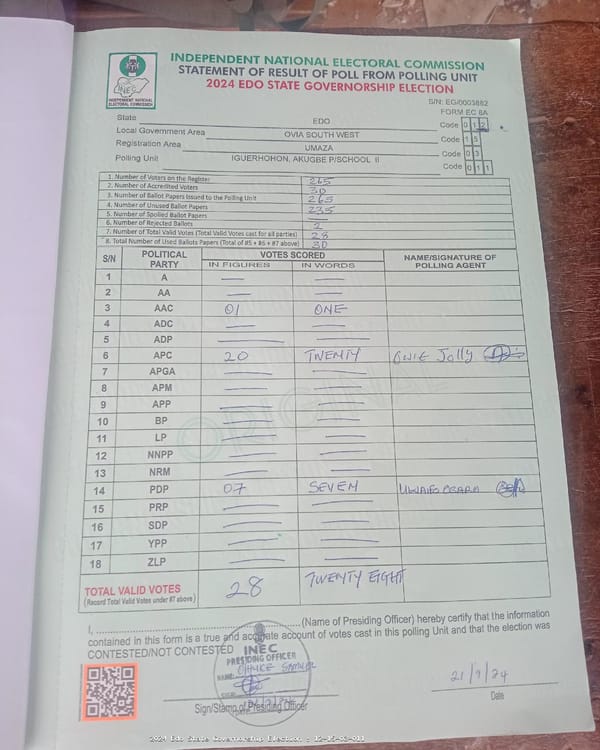 INDEPENDENT NATIONAL ELECTORAL COMMISSION
STATEMENT OF RESULT OF POLL FROM POLLING UNIT
2024 EDO STATE GOVERNORSHIP ELECTION
INEC
INDEPENDENT NATIONAL
ELECTORAL COMMISSION
S/N: EG/0003882
FORM EC 8A
State EDO Code 0 1 2
Local Government Area OVIA SOUTH WEST Code 1 5
Registration Area UMAZA Code 0 3
Polling Unit IGUERHOHON, AKUGBE P/SCHOOL II Code 0 1 1
1. Number of Voters on the Register 265
2. Number of Accredited Voters 30
3. Number of Ballot Papers Issued to the Polling Unit 265
4. Number of Unused Ballot Papers 235
5. Number of Spoiled Ballot Papers —
6. Number of Rejected Ballots 2
7. Number of Total Valid Votes (Total Valid Votes cast for all parties) 28
8. Total Number of Used Ballots Papers (Total of #5 + #6 + #7 above) 30
S/N POLITICAL PARTY VOTES SCORED NAME/SIGNATURE OF POLLING AGENT
IN FIGURES IN WORDS
1 A — —
2 AA — —
3 AAC 01 ONE
4 ADC — —
5 ADP — —
6 APC 20 TWENTY Jolly
7 APGA — —
8 APM — —
9 APP — —
10 BP — —
11 LP — —
12 NNPP — —
13 NRM — —
14 PDP 07 SEVEN
15 PRP — —
16 SDP — —
17 YPP — —
18 ZLP — —
ORIGINAL
TOTAL VALID VOTES 28 TWENTY EIGHT
(Record Total Valid Votes under #7 above)
I, (Name of Presiding Officer) hereby certify that the information
contained in this form is a true and accurate account of votes cast in this polling Unit and that the election was
CONTESTED/NOT CONTESTED
INEC
PRESIDING OFFICER
NAME:
21/9/24
Sign/Stamp of Presiding Officer Date
2024 Edo State Governorship Election : 12-15-03-011